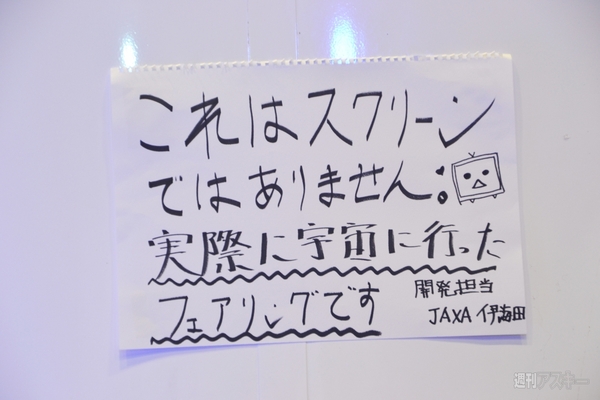 これはスクリーン
ではありません!
実際に宇宙に行った
フェアリングです
開発担当
JAXA 伊海田
週刊アスキー